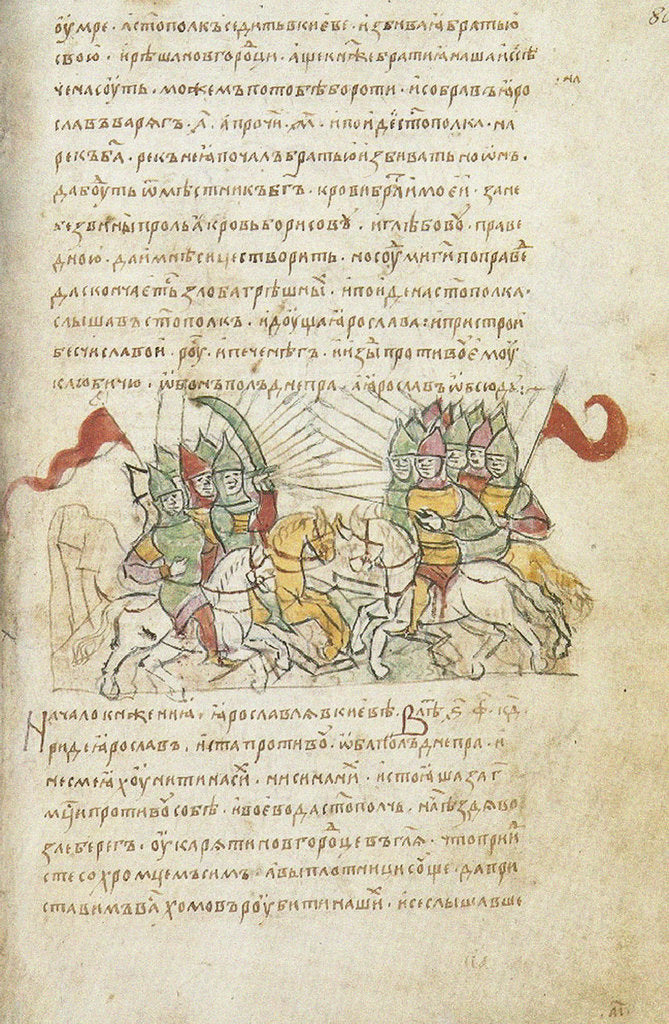 оумре · а стополкъ седить в киеве · избиваꙗ братью
свою · и рѣша новгородци · аще кнѧже братиꙗ наша иссѣ
чена соуть · можемъ по тобѣ бороти · и собравъ ꙗро
славъ варѧгъ · а҃ · а прочии · м҃ · и поиде на стополка · на
рекъ ба҃ · рекъ не ꙗ почалъ братью избивать но онъ ·
да боуть ѿмѣстникъ бг҃ъ · крови братиꙗ моеꙗ · зане
же без вины пролья кровь борисовꙋ · и глѣбовꙋ · праве
дною · да и мнѣ сице створить · но соуди ми ги҃ по правдѣ
да скончаетьсѧ злоба грѣшныⷯ · и поиде на стополка ·
слышавъ стополкъ · идоуща ꙗрослава : и пристрои
бесчисла вои · роуⷭ · и печенѣгъ · и изыде противоу емоу
к любичю · ѡб онъ полъ днепра · а ꙗрославъ ѡбсюдꙋ :~
Начало кнѧжениꙗ · ꙗрославлѧ в киевѣ · В лѣ · ѕ҃ · ф҃ · кд҃ ·
риде ꙗрославъ · и сташа противоу · ѡба полъ днепра · и
не смеꙗхоу ни ти наси · ни си наⷩи · и стоꙗша за г҃
мци противоу собѣ · и воевода стополчь · наⷱ ѣздѧ во
зле берегъ · оукарѧти новгородце въ глѧ · что прии
сте с хромцемъ симъ · а вы плотници соуще · да при
ставимъ ва҃ хомовъ роубити нашиⷯ · и се слышавше